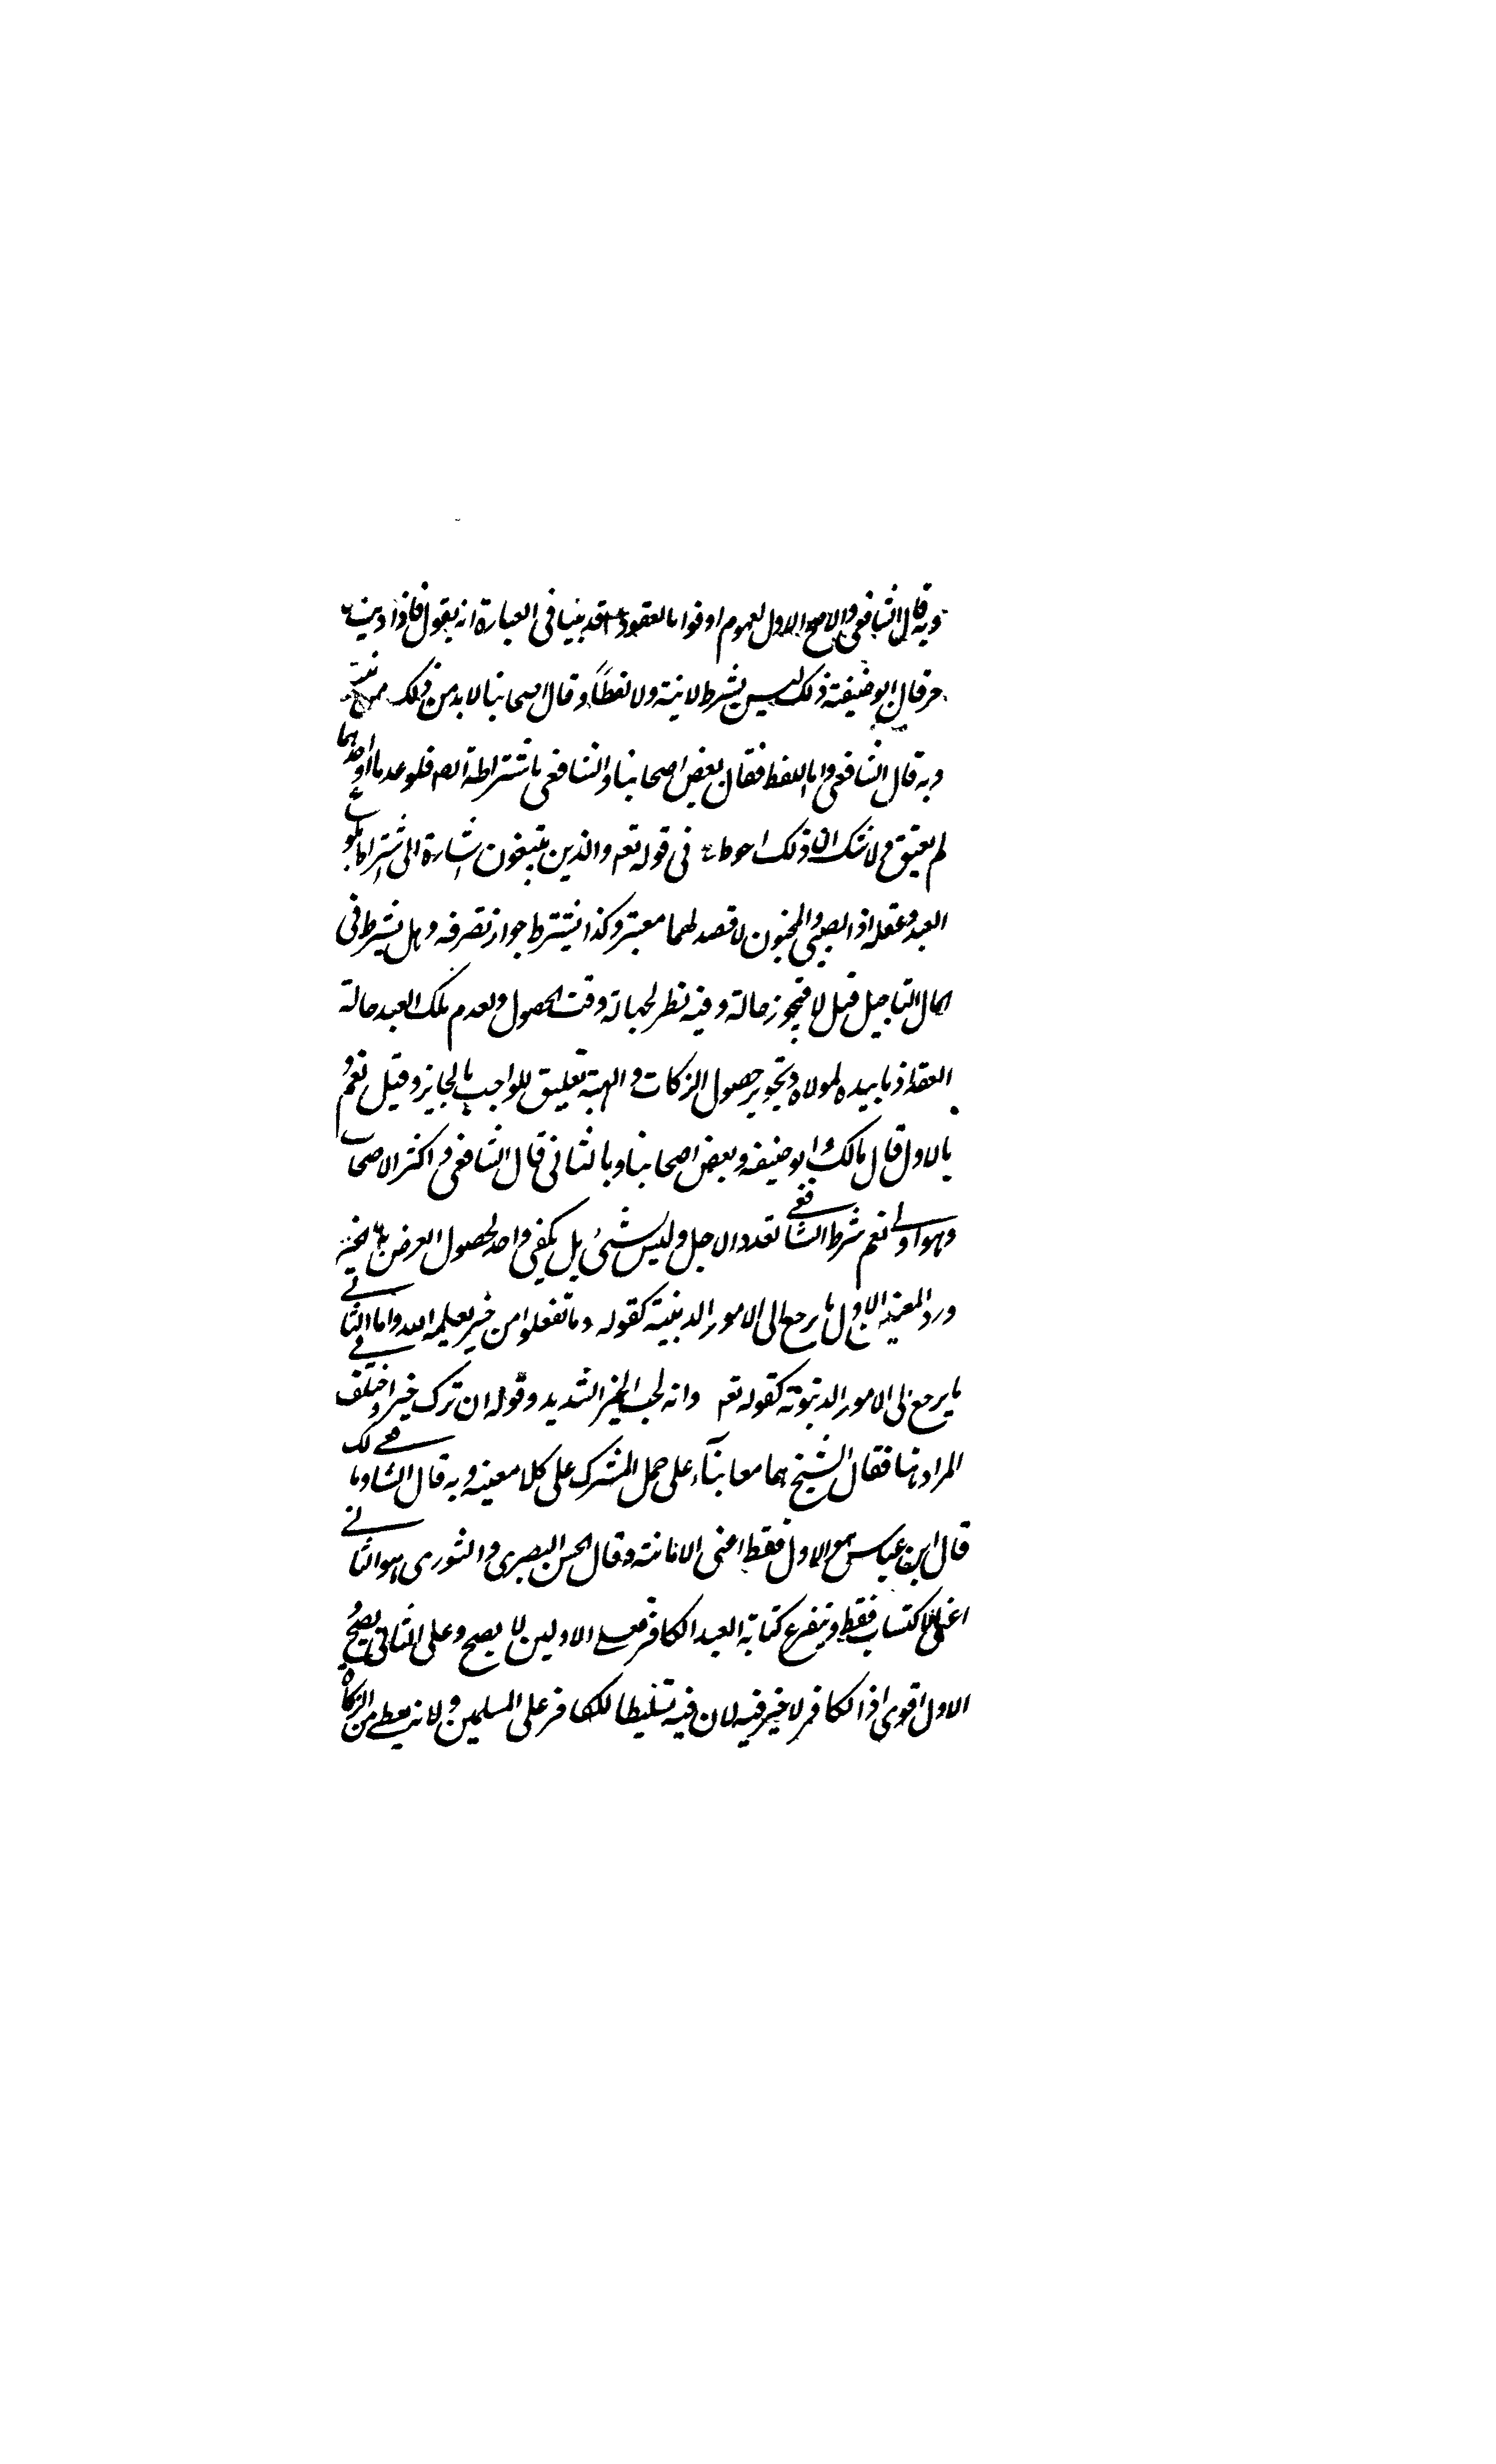 وبه قال الشافعي والاصح الاول لعموم اوفوا بالعقود قد بينا في العبارة انه يقول فاذا اديت
حر فقال ابو حنيفة ذلك ليس بشرط لا نية ولا لفظاً وقال اصحابنا لا بد من ذلك نية
وبه قال الشافعي واما اللفظ فقال بعض اصحابنا والشافعي باشتراطه فلو عدما او احدهما
لم يعتق ولا شك ان ذلك احوط في قوله تعم والذين يبتغون اشارة الى اشتراط بلوغ
العبد وعقله اذ الصبي والمجنون لا قصد لهما معتبر وكذا يشترط جواز تصرفه وهل يشترط في
المال التاجيل قيل لا فيجوز حالة وفيه نظر لجهالة وقت الحصول ولعدم ملك العبد حالة
العقد اذ ما بيده لمولاه وتجويز حصول الزكات والهبة تعليق للواجب بالجايز وقيل نعم و
بالاول قال مالك وابو حنيفه وبعض اصحابنا وبالثاني قال الشافعي واكثر الاصحاب
وهو اولى نعم شرط الشافعي تعدد الاجل وليس بشئ بل يكفي واحد لحصول الغرض به الخير
ورد لمعنيين الاول ما يرجع الى الامور الدينية كقوله وما تفعلوا من خير يعلمه الله واما الثاني
ما يرجع الى الامور الدنيوية كقوله تعم وانه لحب الخير لشديد وقوله ان ترك خيرا واختلف في
المراد هنا فقال الشيخ هما معا بنآء على حمل المشترك على كلا معنييه وبه قال الشافعي ومالك
قال ابن عباس هو الاول فقط اعني الامانة وقال الحسن البصري والثوري هو الثاني
اعني الاكتساب فقط ويتفرع كتابة العبد الكافر فعلى الاولين لا يصح وعلى الثاني يصح و
الاول اقوى اذ الكافر لا خير فيه لان فيه تسليطا للكافر على المسلمين ولانه يعطى من الزكاة